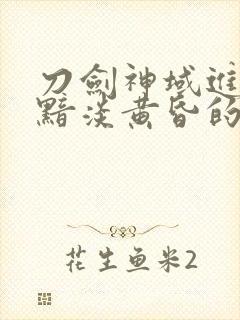 刀劍神域進
黯淡黃昏的
花生鱼米2